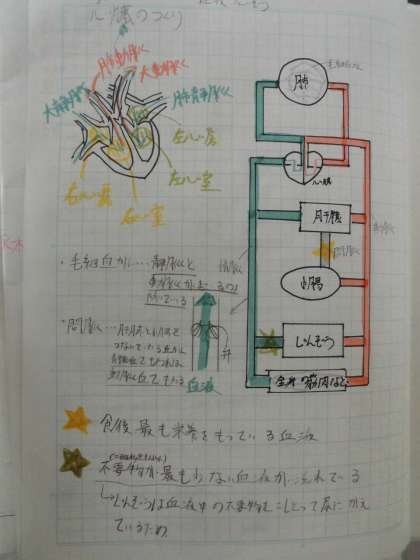 心臓のつくり
肺動脈
大動脈
大静脈
肺静脈
左心房
左心室
右心房
右心室
肺
毛細血かん
心臓
肝臓
門脈
小腸
じんぞう
全身の筋肉など
・毛細血かん…静脈と
動脈が
いている
・門脈…肝臓と小腸を
つないでいる血かん
静脈血でも
動脈血でもある
弁
血液
食後最も栄養をもっている血液
不要物が最も少ない血液が流れている
じんぞうは血液中の不要物をこしとって尿にかえ
ているため